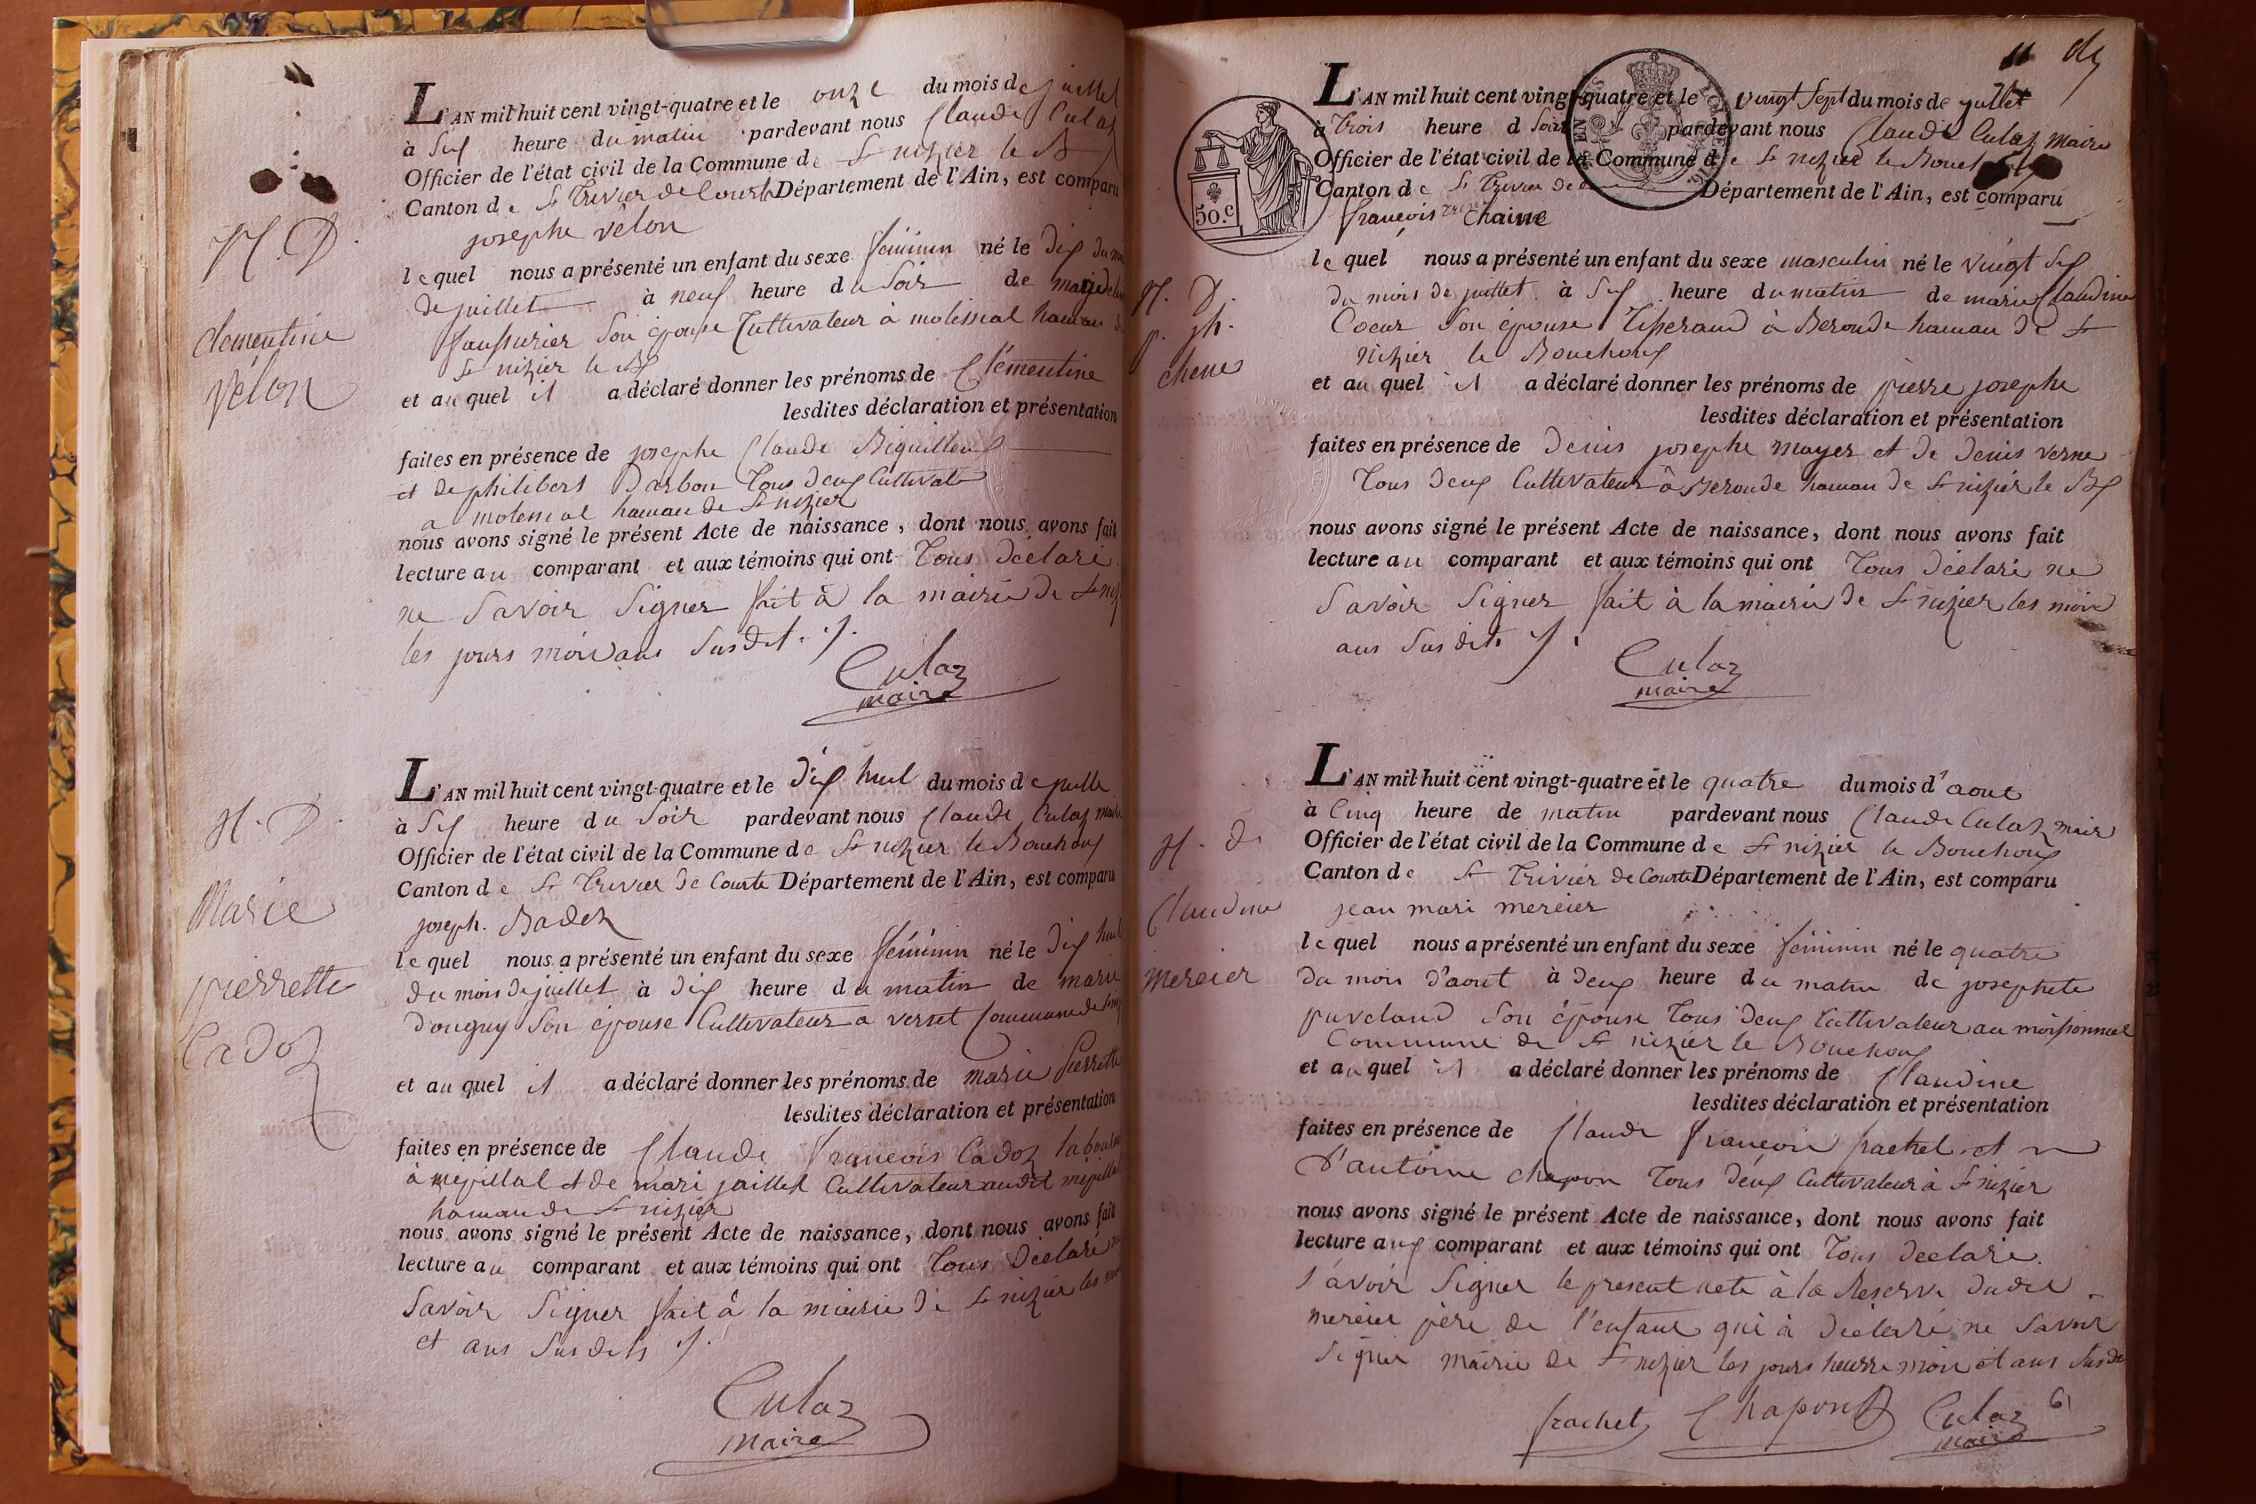 L'AN mil huit cent vingt-quatre et le onze du mois de juillet
à Six heure du matin pardevant nous Claude Culaz
Officier de l'état civil de la Commune de St nizier le B
Canton de St Trivier de Courte Département de l'Ain, est comparu
josephe vélon
le quel nous a présenté un enfant du sexe féminin né le dix du
de juillet à neuf heure du Soir de
Son épouse Cultivateur à molissial hamau
St nizier le
et au quel il a déclaré donner les prénoms de Clémentine
lesdites déclaration et présentation
faites en présence de josephe Claude
et de philibert Darbon Tous deux Cultivate
a hamau de St nizier
nous avons signé le présent Acte de naissance, dont nous avons fait
lecture au comparant et aux témoins qui ont Tous déclaré
ne Savoir Signer fait à la mairie de St
les jours mois ans Susdit
Culaz
maire
N. D.
Clementine
vélon
L'AN mil huit cent vingt-quatre et le dix huit du mois de juille
à Six heure du Soir pardevant nous Claude Culaz
Officier de l'état civil de la Commune de St nizier le Bouchoux
Canton de St Trivier de Courte Département de l'Ain, est comparu
joseph. Cadoz
le quel nous a présenté un enfant du sexe féminin né le dix huit
du mois de juillet à dix heure du matin de marie
Donguy Son épouse Cultivateur a verset Commune de
et au quel il a déclaré donner les prénoms de marie Pierrette
lesdites déclaration et présentation
faites en présence de Claude françois Cadoz
à mépillat et de mari jaillet Cultivateur audit mépillat
hamau de St nizier
nous avons signé le présent Acte de naissance, dont nous avons fait
lecture au comparant et aux témoins qui ont Tous déclaré
Savoir Signer fait à la mairie de St nizier les
et ans Susdits
Culaz
maire
N. D.
Marie
pierrette
Cadoz
11
50.c
L'AN mil huit cent vingt-quatre et le vingt Sept du mois de juillet
à Trois heure d Soir pardevant nous Claude Culaz maire
Officier de l'état civil de la Commune de St nizier le Bouch
Canton de St Trivier de Département de l'Ain, est comparu
françois Chaine
le quel nous a présenté un enfant du sexe masculin né le vingt Six
du mois de juillet à Six heure du matin de marie Claudine
Coeur Son épouse Tisserand à Beroude hamau de St
nizier le Bouchoux
et au quel il a déclaré donner les prénoms de pierre josephe
lesdites déclaration et présentation
faites en présence de denis josephe mayer et de denis verne
Tous deux Cultivateur à Beroude hamau de St nizier le Bx
nous avons signé le présent Acte de naissance, dont nous avons fait
lecture au comparant et aux témoins qui ont Tous déclaré ne
Savoir Signer fait à la mairie de St nizier les mois
ans Susdits
Culaz
maire
N. D.
p. jh.
chene
L'AN mil huit cent vingt-quatre et le quatre du mois d'aout
à Cinq heure de matin pardevant nous Claude Culaz mair
Officier de l'état civil de la Commune de St nizier le Bouchoux
Canton de St Trivier de Courte Département de l'Ain, est comparu
jean mari mercier
le quel nous a présenté un enfant du sexe féminin né le quatre
du mois d'aout à deux heure du matin de josephete
puveland Son épouse Tous deux Cultivateur au
Commune de St nizier le Bouchoux
et au quel il a déclaré donner les prénoms de Claudine
lesdites déclaration et présentation
faites en présence de Claude françois frachet et
d'antoine chapon Tous deux Cultivateur à St nizier
nous avons signé le présent Acte de naissance, dont nous avons fait
lecture aux comparant et aux témoins qui ont Tous declaré
Savoir Signer le present acte à la Reserve dudit
mercier père de l'enfant qui à déclaré ne Savoir
Signer mairie de St nizier les jours heurre mois et ans Susdit
frachet Chapon Culaz
maire
61
N. D.
Claudine
mercier